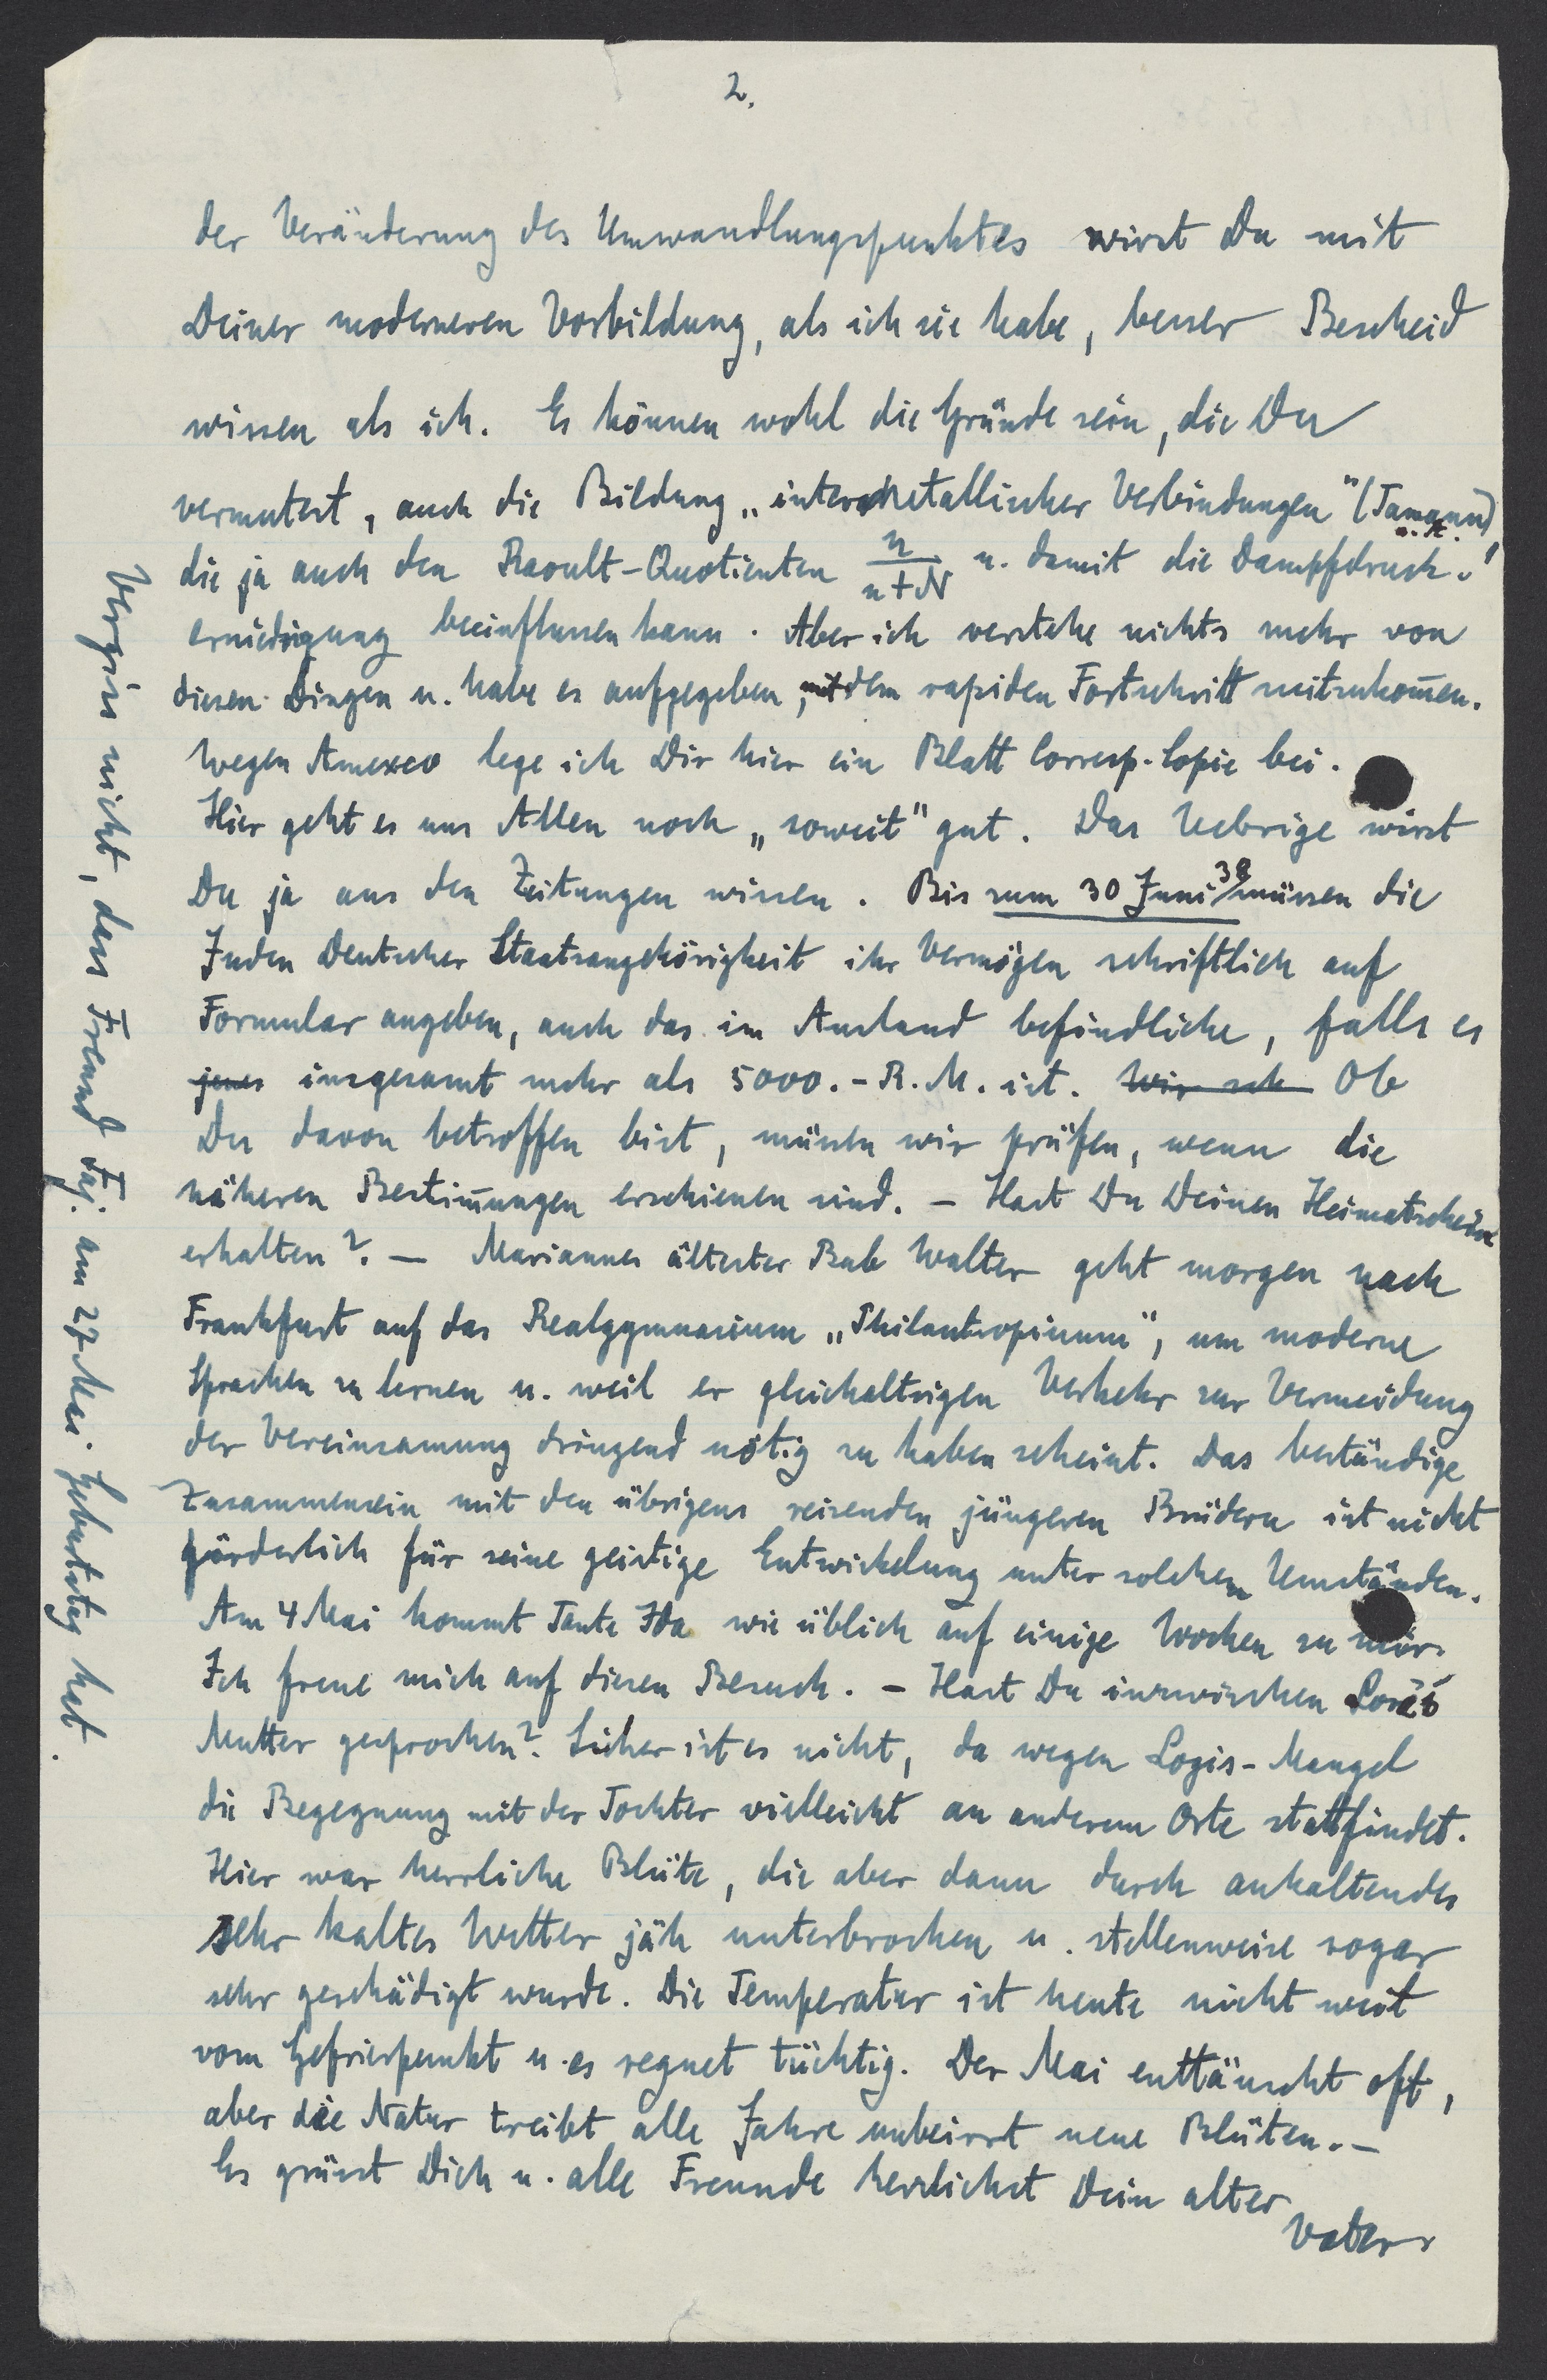 2.
der Veränderung des Umwandlungspunktes wirst Du mit
Deiner moderneren Vorbildung, als ich sie habe, besser Bescheid
wissen als ich. Es können wohl die Gründe sein, die Du
vermutest, auch die Bildung „intermetallischer Verbindungen" (Tamann)
u. A.
die ja auch den Raoult-Quotienten n/n+N u. damit die Dampfdruck-
erniedrigung beeinflussen kann. Aber ich verstehe nichts mehr von
diesen Dingen u. habe es aufgegeben, mit dem rapiden Fortschritt mitzukom̄en.
Wegen Amexco lege ich Dir hier ein Blatt Corresp.-Copie bei.
Hier geht es uns Allen noch „soweit" gut. Das Uebrige wirst
Du ja aus den Zeitungen wissen. Bis zum 30 Juni 38 müssen die
Juden Deutscher Staatsangehörigkeit ihr Vermögen schriftlich auf
Formular angeben, auch das im Ausland befindliche, falls es
jenes insgesamt mehr als 5000.- R.M. ist. Wir seh Ob
Du davon betroffen bist, müssen wir prüfen, wenn die
näheren Bestim̄ungen erschienen sind. – Hast Du Deinen Heimatschein
erhalten? – Mariannes ältester Bub Walter geht morgen nach
Frankfurt auf das Realgymnasium „Philantropinum", um moderne
Sprachen zu lernen u. weil er gleichaltrigen Verkehr zur Vermeidung
der Vereinsamung dringend nötig zu haben scheint. Das beständige
Zusammensein mit den übrigens reizenden jüngeren Brüdern ist nicht
förderlich für seine geistige Entwickelung unter solchen Umständen.
Am 4 Mai kommt Tante Ida wie üblich auf einige Wochen zu mir.
Ich freue mich auf diesen Besuch. – Hast Du inzwischen
Mutter gesprochen? Sicher ist es nicht, da wegen Logis-Mangel
die Begegnung mit der Tochter vielleicht an anderem Orte stattfindet.
Hier war herrliche Blüte, die aber dann durch anhaltendes
sehr kaltes Wetter jäh unterbrochen u. stellenweise sogar
sehr geschädigt wurde. Die Temperatur ist heute nicht weit
vom Gefrierpunkt u. es regnet tüchtig. Der Mai enttäuscht oft,
aber die Natur treibt alle Jahre unbeirrt neue Blüten. –
Es grüsst Dich u. alle Freunde herzlichst Dein alter
Vater
Vergiss nicht, dass Freund Faj. am 27 Mai Geburtstag hat.